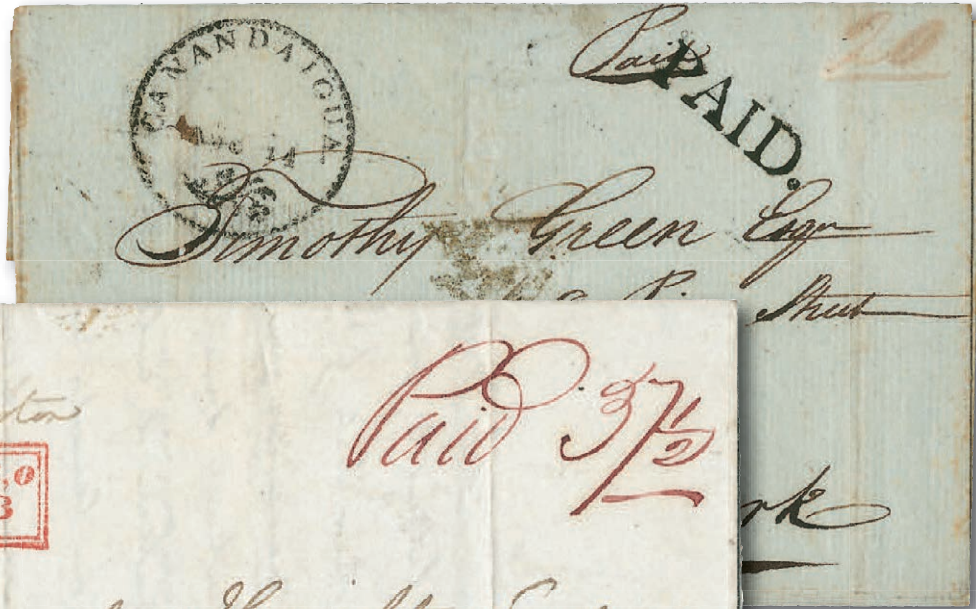 CANANDAIGUA
14
Paid
PAID.
20
Timothy Green Esqr
Street
rk
ton
Paid 37 1/2
3